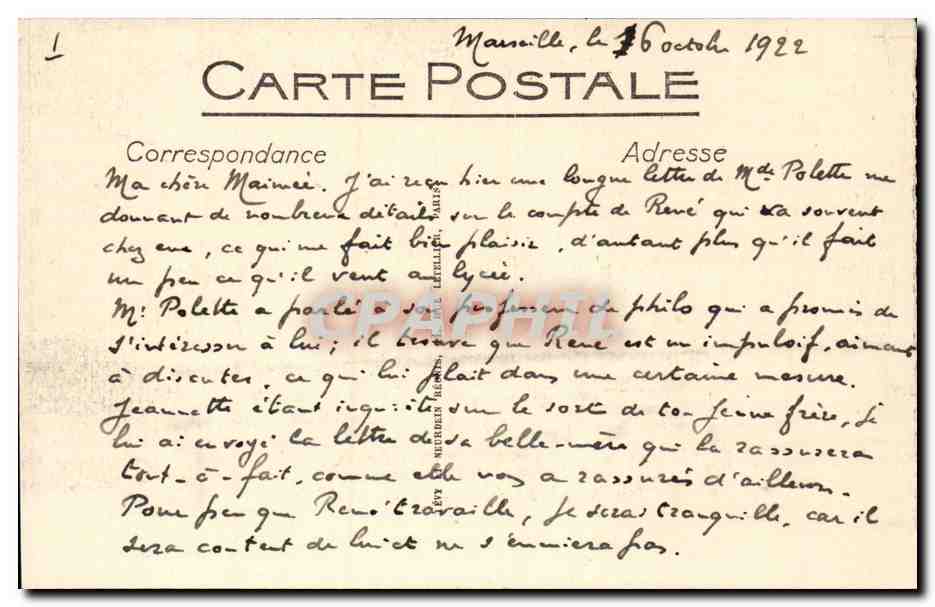 1
Marseille, le 16 octobre 1922
CARTE POSTALE
Correspondance
Adresse
Ma chère Maimée. J'ai reçu hier une longue lettre de Mde Polette me
donnant de nombreux détails sur le compte de René qui va souvent
chez eux, ce qui me fait bien plaisir, d'autant plus qu'il fait
un peu ce qu'il veut au lycée.
Mr Polette a parlé à son professeur de philo qui a promis de
s'intéresser à lui ; il trouve que René est un impulsif, aimant
à discuter, ce qui lui plait dans une certaine mesure.
Jeannette étant inquiète sur le sort de ton jeune frère, je
lui ai envoyé la lettre de sa belle-mère qui la rassurera
tout-à-fait, comme elle vous a rassurés d'ailleurs.
Pour peu que René travaille, je serai tranquille, car il
sera content de lui et ne s'ennuiera pas.
LÉVY NEURDEIN RÉUNIS, RUE LETELLIER, PARIS
CPAPHIL